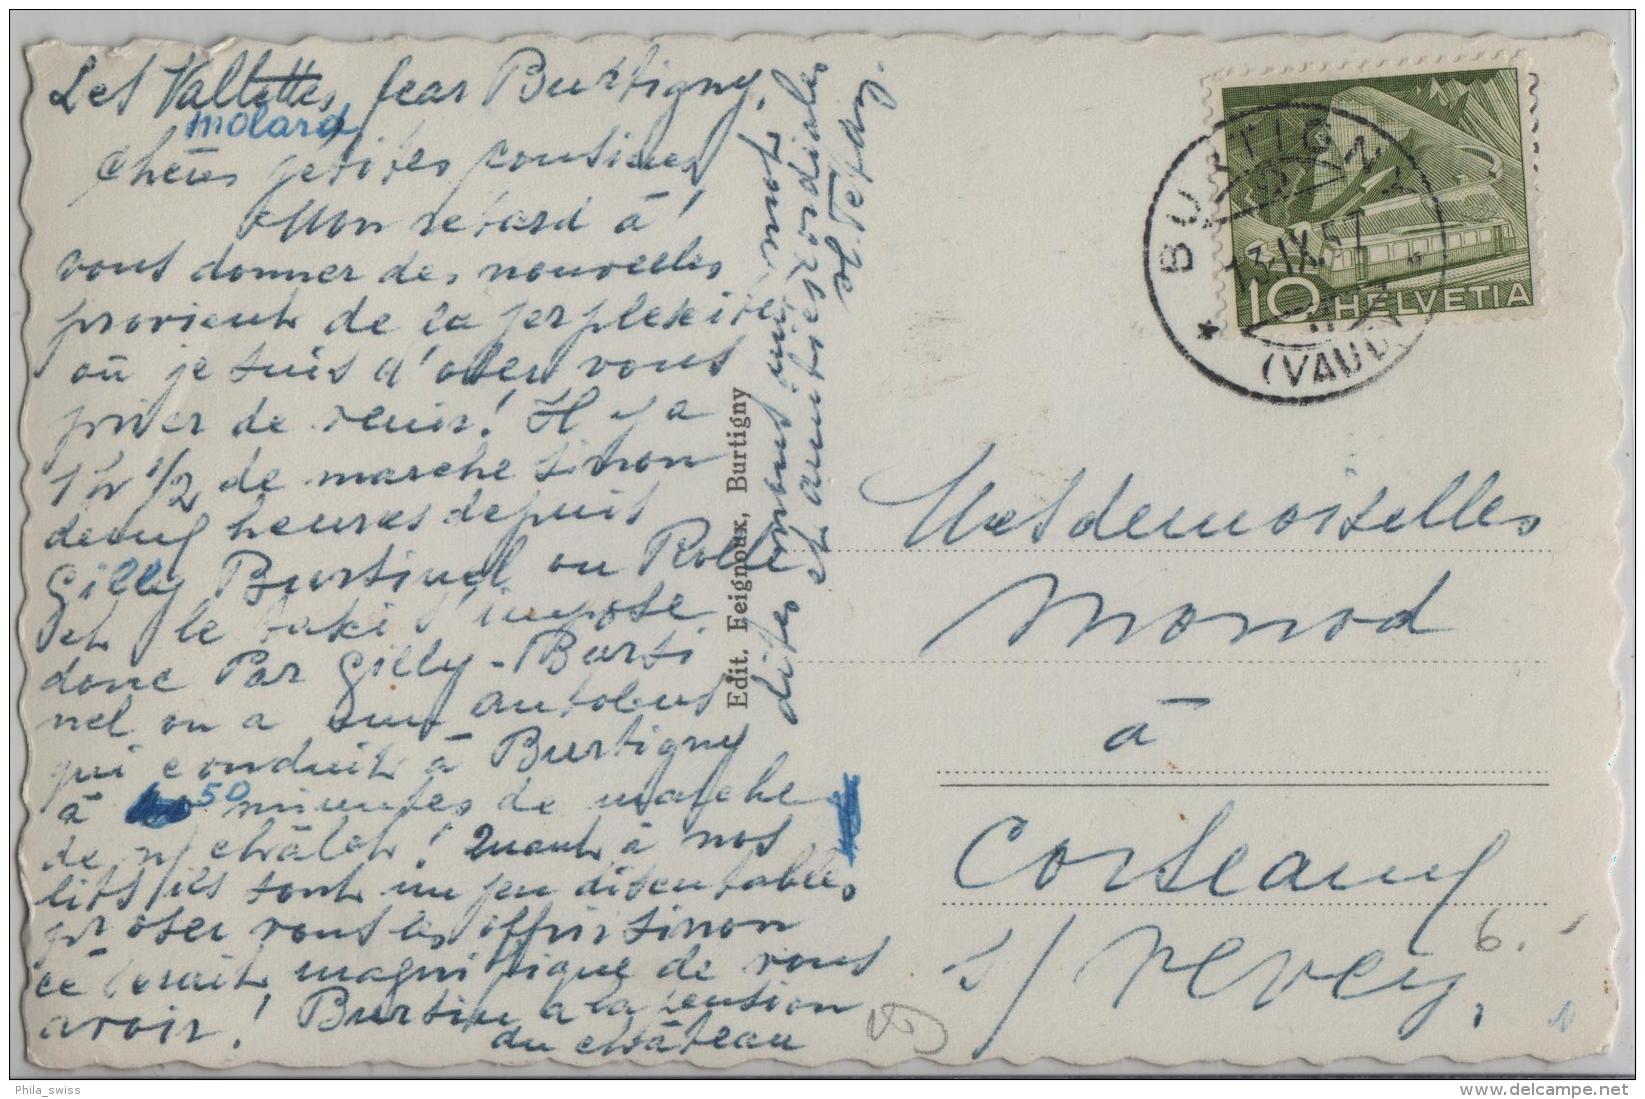 Les Vallettes, sear Burtigny,
molard
Chères petites cousines,
Mon retard à
vous donner des nouvelles
provient de la perplexité
où je suis d'oser vous
prier de venir! Il y a
1 h 1/2 de marche sinon
deux heures depuis
Gilly Bursinel ou Rolle
et le taxi s'impose
donc Par Gilly-Bursi
nel on a un autobus
qui conduit à Burtigny
à 50 minutes de marche
de n/ châlet! Quant à nos
lits ils sont un peu discutables
pr oser vous les offrir sinon
ce serait magnifique de vous
avoir! Bursin a la pension
du château
dites nous un mot
et amitiés cordiales
Edit. Feignoux, Burtigny
BURTIGNY
13.IX.57
(VAUD)
10 HELVETIA
Mesdemoiselles
Monod
à
Corseaux
s/ Vevey,
6.-
Phila_swiss
www.delcampe.net